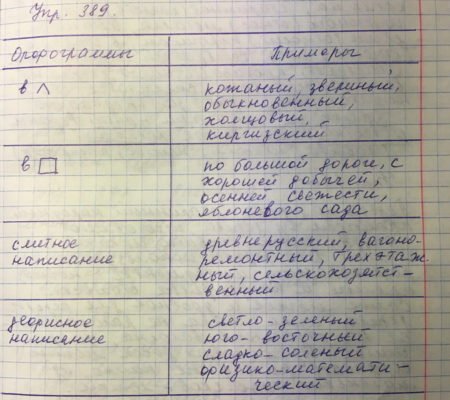 Упр. 389.
Орфограммы
Примеры
в ^
кожаный, звериный,
обыкновенный,
холщовый,
киргизский
в □
по большой дороге, с
хорошей добычей,
осенней свежести,
яблоневого сада
слитное
написание
древнерусский, вагоно-
ремонтный, трехэтаж-
ный, сельскохозяйст-
венный
дефисное
написание
светло-зеленый
юго-восточный
сладко-соленый
физико-математи-
ческий